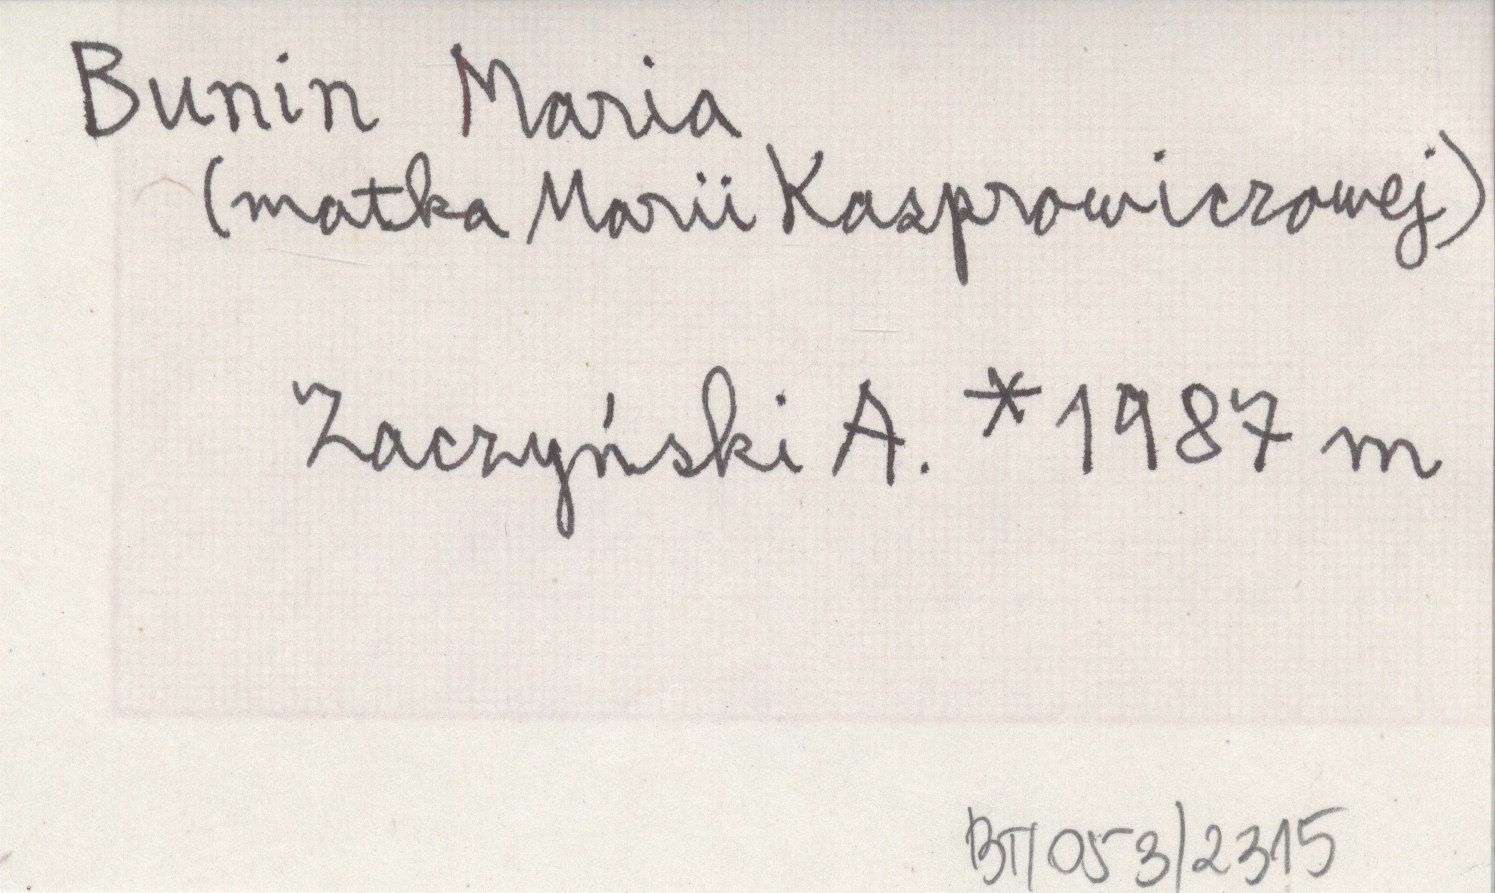 Bunin Maria
(matka Marii Kasprowiczowej)
Zaczyński A. * 1987 m
BT/053/2315